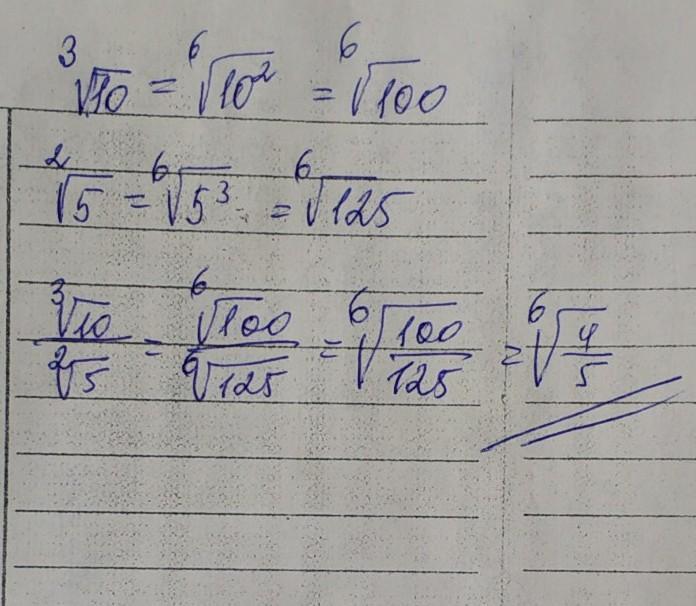 ³√10 = ⁶√10² = ⁶√100
²√5 = ⁶√5³ = ⁶√125
³√10 / ²√5 = ⁶√100 / ⁶√125 = ⁶√(100/125) = ⁶√(4/5)